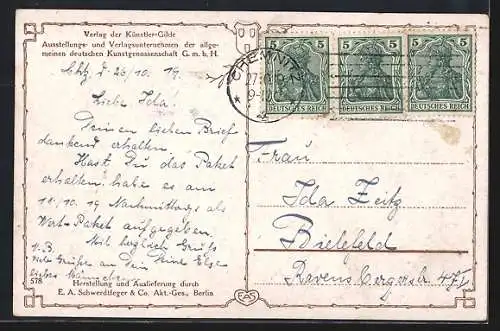 Verlag der Künstler-Gilde
Ausstellungs- und Verlagsunternehmen der allge-
meinen deutschen Kunstgenossenschaft G. m. b. H.
d. 26/10. 19.
Liebe Ida!
Deinen lieben Brief
dankend erhalten.
Hast Du das Paket
erhalten. habe es am
18.10.19 Nachmittags als
Wert-Paket aufgegeben.
Gruß
Deine Else
N.B.
viele Grüße an Dein
liebes
578
Herstellung und Auslieferung durch
E. A. Schwerdtfeger & Co. Akt.-Ges., Berlin
EAS
CHEMNITZ
5 5
DEUTSCHES REICH
5 5
DEUTSCHES REICH
5 5
DEUTSCHES REICH
Frau
Ida Zeitz
Bielefeld
Ravensbergerstr. 47